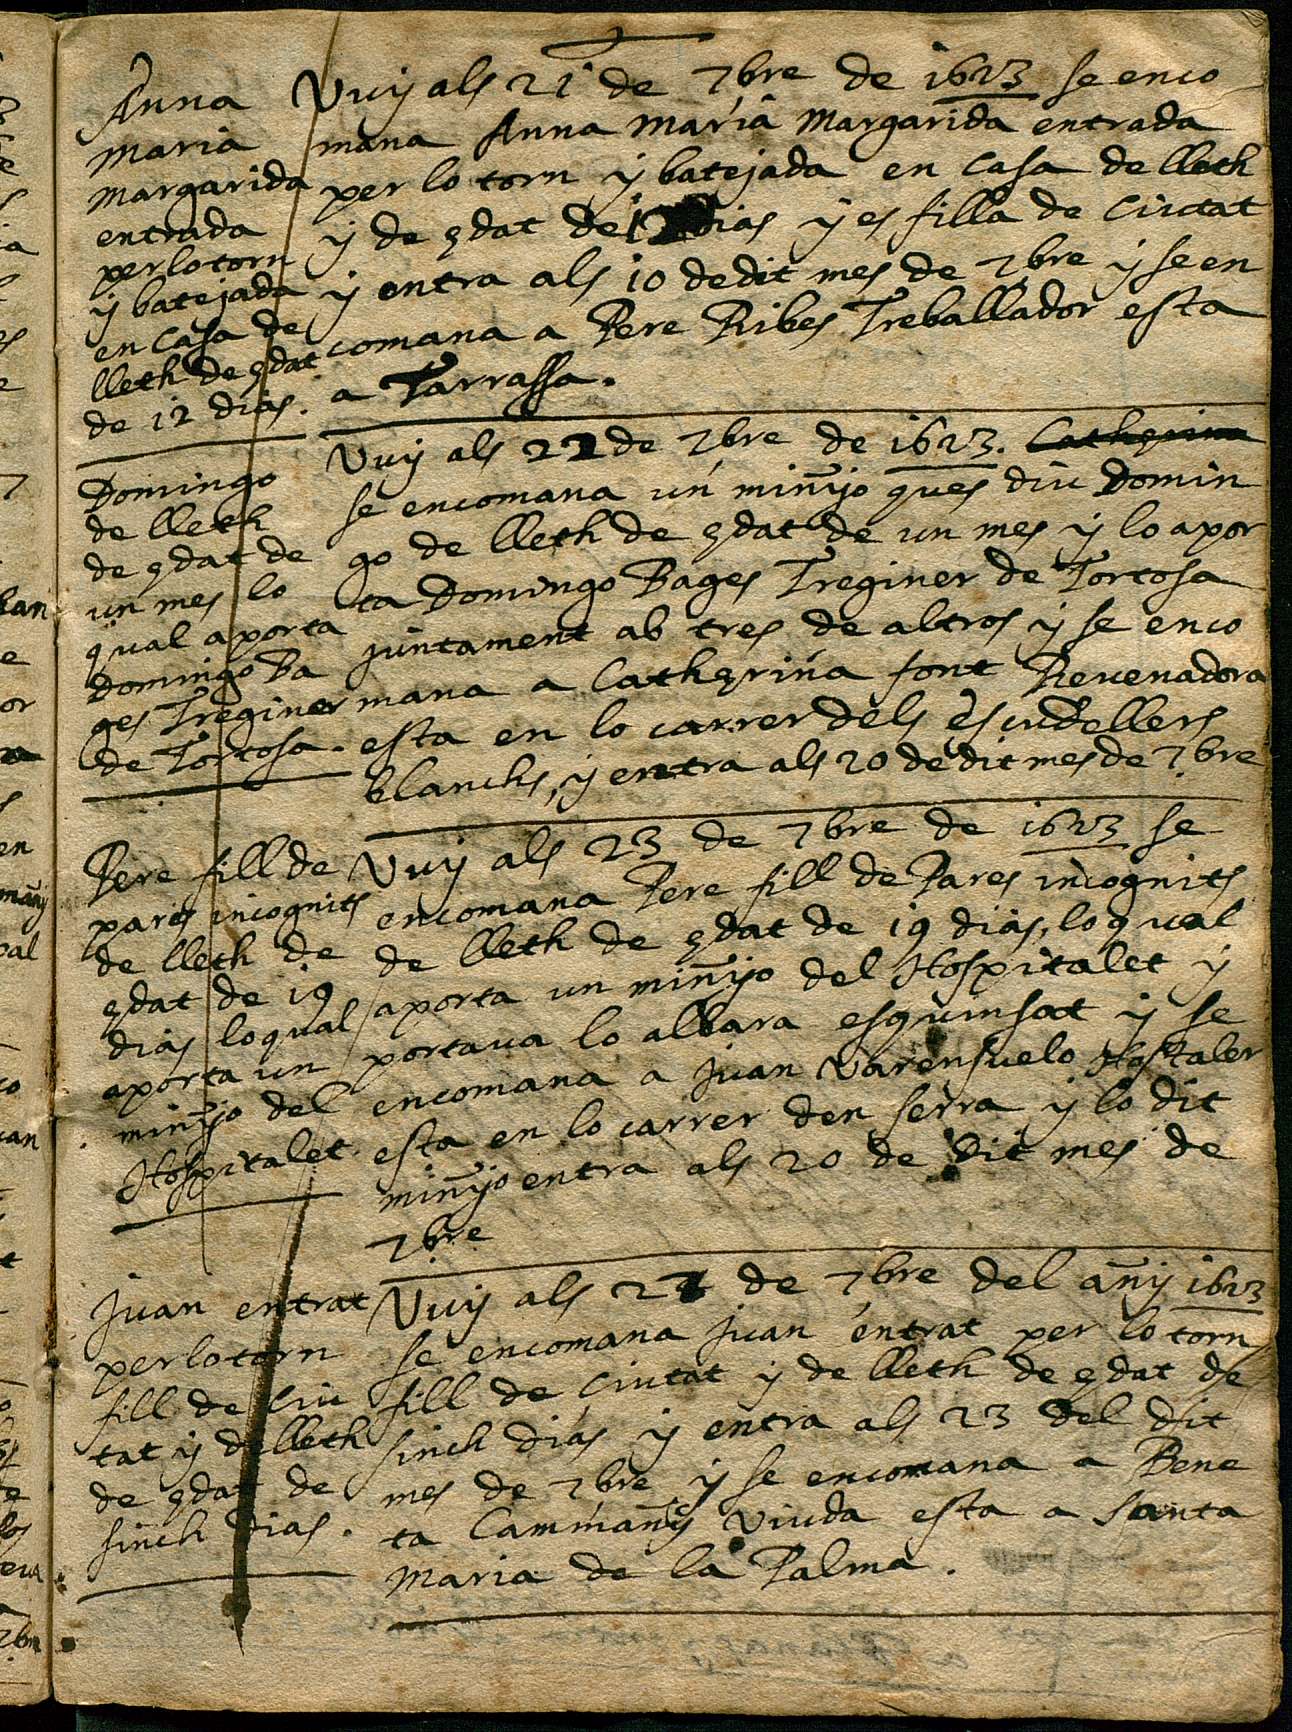 Anna
Maria
Margarida
entrada
per lo torn
y batejada
en casa de
lleth de edat
de 12 dias.
Vuy als 21 de 7bre de 1623 se enco
mana Anna Maria Margarida entrada
per lo torn y batejada en casa de lleth
y de edat de 12 dias y es filla de Ciutat
y entra als 10 de dit mes de 7bre y se en
comana a Pere Ribes Treballador esta
a Tarrassa.
Domingo
de lleth
de edat de
un mes lo
qual aporta
Domingo Ba
ges Treginer
de Tortosa.
Vuy als 22 de 7bre de 1623. Catherina
se encomana un minyo ques diu Domin
go de lleth de edat de un mes y lo apor
ta Domingo Bages Treginer de Tortosa
juntament ab tres de altros y se enco
mana a Catherina font Revenadora
esta en lo carrer dels escudellers
blanchs, y entra als 20 de dit mes de 7bre
Pere fill de
pares incognits
de lleth de
edat de 19
dias loqual
aporta un
minyo del
Hospitalet.
Vuy als 23 de 7bre de 1623 se
encomana Pere fill de Pares incognits
de lleth de edat de 19 dias, loqual
aporta un minyo del Hospitalet y
portava lo albara esquinsat y se
encomana a Juan Varensuelo Hostaler
esta en lo carrer den serra y lo dit
minyo entra als 20 de dit mes de
7bre
Juan entrat
per lo torn
fill de Ciu
tat y de lleth
de edat de
sinch dias.
Vuy als 24 de 7bre del añy 1623
se encomana Juan entrat per lo torn
fill de Ciutat y de lleth de edat de
sinch dias y entra als 23 del dit
mes de 7bre y se encomana a Bene
ta Cammañy Viuda esta a Santa
Maria de la Palma.